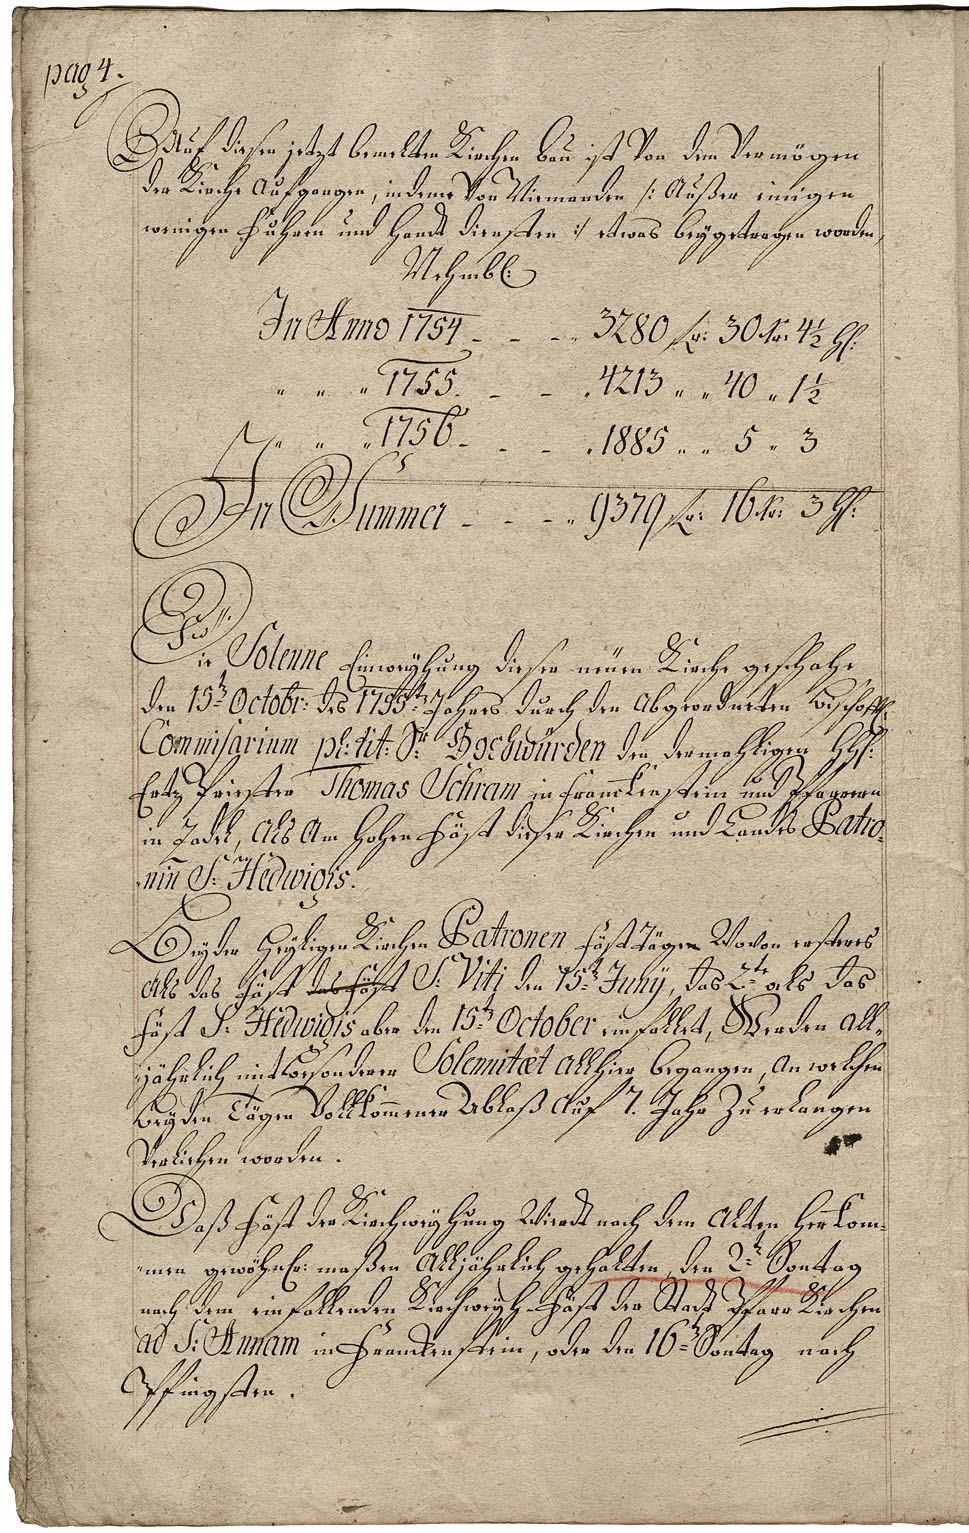 pag 4.
Auf diesen jetzt bemelten Kirchen bau ist Von dem Vermögen
der Kirche Aufgangen, indeme Von Niemanden /: Außer einigen
wenigen Fuhren und Handt diensten :/ etwas beygetragen worden,
Nehmbl:
In Anno 1754 - - - „ 3280 fl: 30 Kr: 4½ hl:
„ „ „ 1755. - - „ 4213 „ „ 40 „ 1½
„ „ „ 1756 - - - „ 1885 „ „ 5 „ 3
In Summer - - - „ 9379 fl: 16 Kr: 3 hl:
Die Solenne Einweyhung dieser neüen Kirche geschahe
den 15t Octobr: des 1755t Jahres durch den Abgeordneten Bischöffl:
Commisarium pl: tit: Sr Hochwürden den dermahligen HH:
Ertz Priester Thomas Schram in Franckenstein und Pfarrern
in Zadel, Als Am Hohen Fäst dieser Kirchen und Landes Patro-
-nin S: Hedwigis.
Beyder Heyligen Kirchen Patronen Fäst Tägen Wovon ersteres
Als das Fäst das Fäst S: Viti den 15t Juny, das 2te als das
Fäst S: Hedwigis aber den 15t October einfallet, Werden All-
-jährlich mit besonderer Solemnitæt Allhier begangen, An welchen
beyden Tägen Vollkommener Ablaß Auf 7. Jahr Zu erlangen
Verliehen worden.
Daß Fäst der Kirchweyhung Wierdt nach dem Alten Herkom-
-men gewöhnl: maßen Alljährlich gehalten den 2t Sontag
nach dem einfallenden Kirchweyh-Fäst der Stadt Pfarr Kirchen
ad S: Annam in Franckenstein, oder den 16t Sontag nach
Pfingsten.